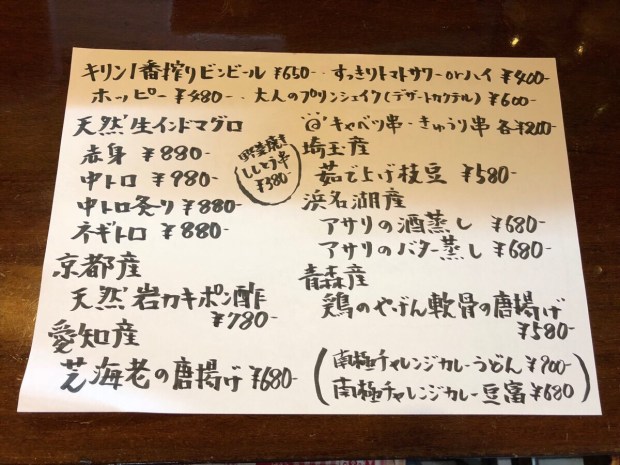 キリン1番搾りビンビール ¥650-・すっきりトマトサワーorハイ ¥400-
ホッピー ¥480-・大人のプリンシェイク(デザートカクテル)¥600-
天然生インドマグロ
赤身 ¥880-
中トロ ¥980-
中トロ炙り ¥880-
ネギトロ ¥880-
京都産
天然岩カキポン酢
¥780-
愛知産
芝海老の唐揚げ ¥680-
野菜焼き
ししとう串
¥380-
キャベツ串・きゅうり串 各¥200-
埼玉産
茹で上げ枝豆 ¥580-
浜名湖産
アサリの酒蒸し ¥680-
アサリのバター蒸し ¥680-
青森産
鶏のやげん軟骨の唐揚げ
¥580-
(南極チャレンジカレーうどん ¥900-
南極チャレンジカレー豆富 ¥680)